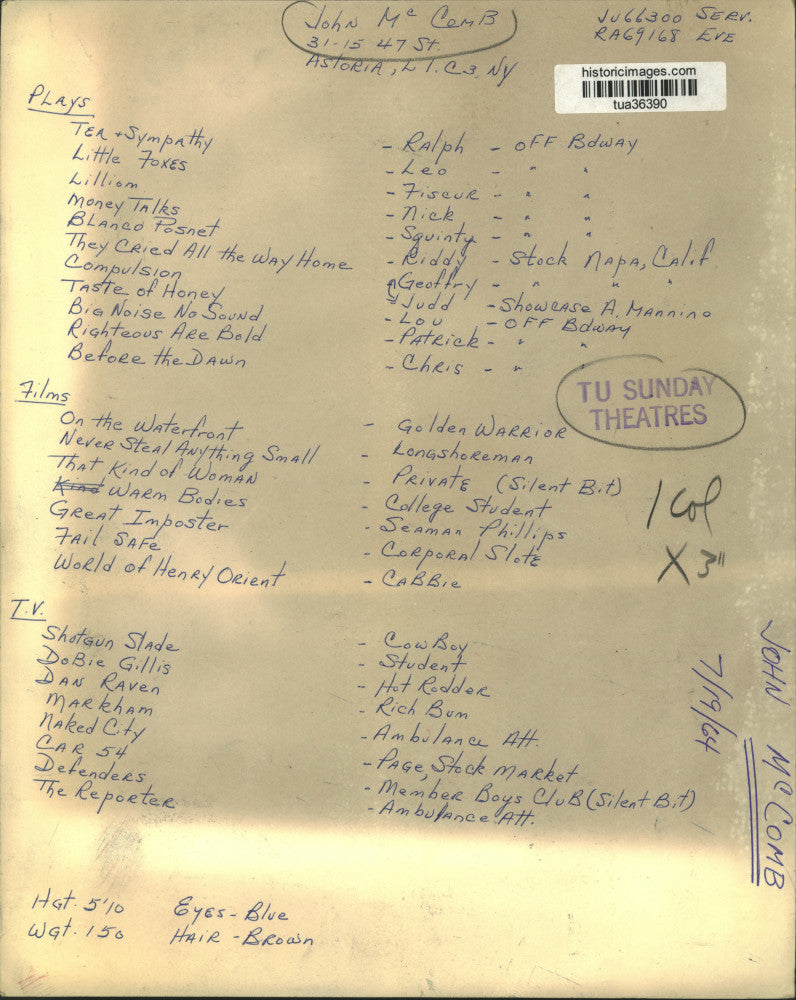 John Mc ComB
31-15 47 St.
ASTORIA, L I.C. 3, NY
JU66300 SERV.
RA69168 EVE
historicimages.com
tua36390
PLAYS
TEA + Sympathy - RAlph - OFF Bdway
Little FOXES - Leo - " "
Lilliom - Fiscur - " "
Money Talks - Nick - " "
BLANCO Posnet - Squinty - " "
They CRied All the WAy Home - Riddy - Stock NAPA, CAlif.
Compulsion - Geoffry - " " "
TASTE of Honey - Judd - Showcase A. MANNINO
Big Noise No Sound - Lou - OFF Bdway
Righteous ARe Bold - PATRick - " "
Before the DAwn - ChRis - "
TU SUNDAY
THEATRES
Films
On the WAterfront - Golden WARRioR
Never Steal Anything Small - Longshoreman
That Kind of WOMAN - PRivATE (Silent Bit)
Kind WARM Bodies - College Student
GREAT Imposter - SEAMAN Phillips
FAil SAFe - CORPORAl Slote
WORld of HenRy ORient - CABBie
1 Col
X 3"
T.V.
Shotgun Slade - CowBoy
DoBie Gillis - Student
DAN RAVEN - Hot Rodder
MARkham - Rich Bum
NAked City - AmbulAnce Att.
CAR 54 - PAGE, Stock MARket
Defenders - Member Boys CluB (Silent Bit)
The RepoRteR - AmbulAnce Att.
7/19/64
JOHN McCOMB
Hgt. 5'10 Eyes - Blue
Wgt. 150 HAIR - BRown